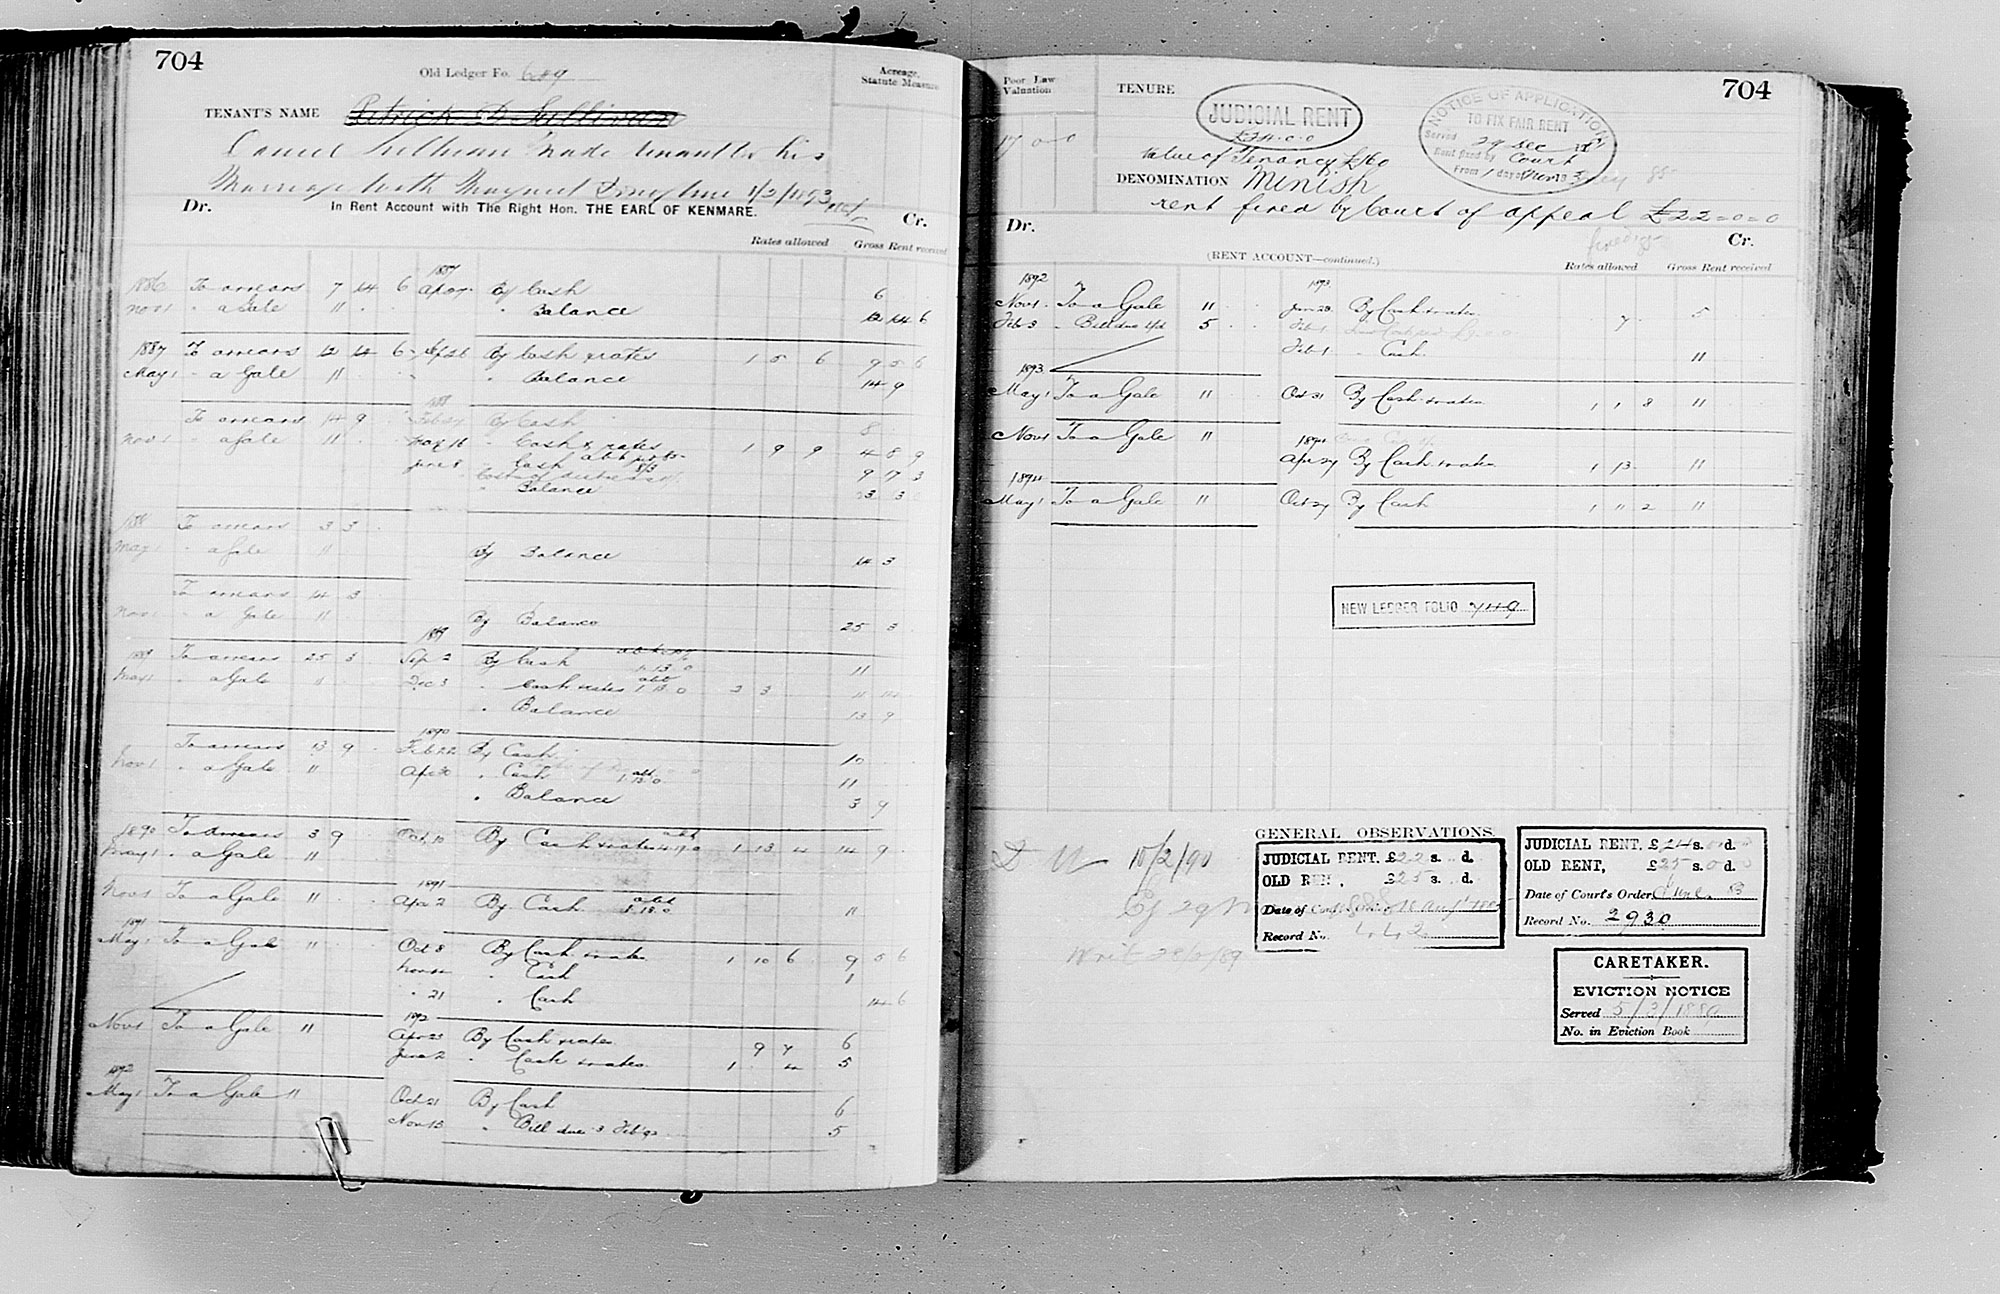 704
Old Ledger Fo. 689
Acreage, Statute Measure
TENANT'S NAME Patrick D Sullivan
Daniel Sullivan made tenant on his
Marriage with Margaret 1/2/1893
Dr. In Rent Account with The Right Hon. THE EARL OF KENMARE. Cr.
Rates allowed Gross Rent received
1886 To arrears 7 14 6
1887
Apr 27 By Cash 6
Nov 1 " a Gale 11 " Balance 12 14 6
1887 To arrears 12 14 6 Sep 26 By Cash & rates 1 5 6 9 5 6
May 1 " a Gale 11 " Balance 14 9
1888
To arrears 14 9 By Cash 8
Nov 1 " a Gale 11 May 16 " Cash & rates 1 9 9 4 8 9
June 8 Cash 9 17 3
" Balance 23 3
1888 To arrears 23 3
May 1 " a Gale 11 By Balance 14 3
To arrears 14 3
Nov 1 " a Gale 11 By Balance 25 3
1889
1889 To arrears 25 3 Sep 2 By Cash 1.13.0 11
May 1 " a Gale 11 Dec 3 " Cash & rates abt 1.13.0 2 3 11
" Balance 13 9
1890
To arrears 13 9 Feb 22 By Cash 10
Nov 1 " a Gale 11 Apr 30 " Cash abt 1.13.0 11
" Balance 3 9
1890 To arrears 3 9 Oct 10 By Cash & rates 1 13 4 14 9
May 1 " a Gale 11
1891
Nov 1 To a Gale 11 Apr 2 By Cash abt 1.13.0 11
1891
May 1 To a Gale 11 Oct 8 By Cash & rates 1 10 6 9 5 6
Nov " Cash 1
" 21 " Cash 14 6
1892
Nov 1 To a Gale 11 Apr 23 By Cash & rates 9 7 6
June 2 " Cash & rates 1 4 5
1892
May 1 To a Gale 11 Oct 21 By Cash 6
Nov 15 " Bill due 3 Feb 93 5
Poor Law Valuation
17 0 0
TENURE
704
JUDICIAL RENT
£24.0.0
NOTICE OF APPLICATION
TO FIX FAIR RENT
Served 29 Dec
Rent fixed by Court
From 1 day of
Value of Tenancy £160
DENOMINATION Minish
rent fixed by Court of appeal £22=0=0
Dr. Cr.
(RENT ACCOUNT—continued.)
Rates allowed Gross Rent received
1892
1893
Nov 1 To a Gale 11 Jan 28 By Cash & rates 7 5
Feb 3 " Bill due 5 Feb 1
Feb 1 " Cash 11
1893
May 1 To a Gale 11 Oct 31 By Cash & rates 1 1 3 11
Nov 1 To a Gale 11
1894
Apr 27 By Cash & rates 1 13 11
1894
May 1 To a Gale 11 Oct 27 By Cash 1 11 2 11
NEW LEDGER FOLIO 749
GENERAL OBSERVATIONS.
10/2/90
Writ
JUDICIAL RENT. £22 s. d.
OLD RENT, £25 s. d.
Date of Court's Order
Record No. 442
JUDICIAL RENT. £24 s. 0 d. 0
OLD RENT, £25 s. 0 d. 0
Date of Court's Order
Record No. 2930
CARETAKER.
EVICTION NOTICE
Served 5/3/1889
No. in Eviction Book